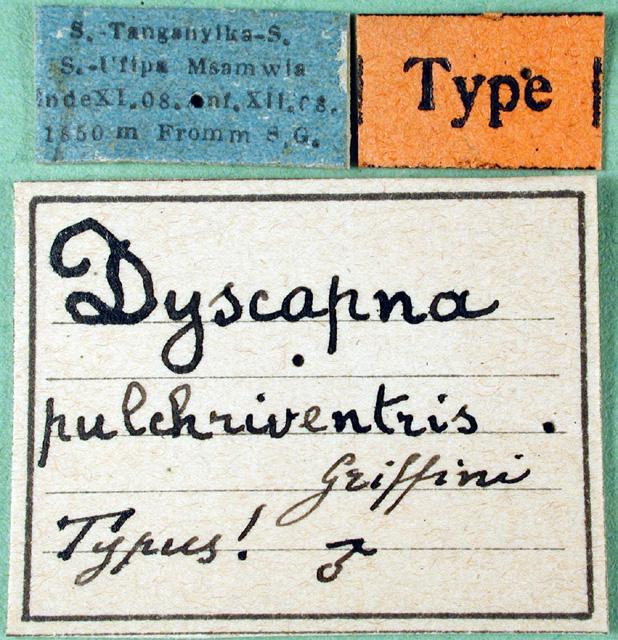 S.-Tanganyika-S.
S.-Ufipa Msamwia
Ende XI.08. Anf. XII.08.
1850 m Fromm S.G.
Type
Dyscapna
pulchriventris .
Griffini
Typus! ♂